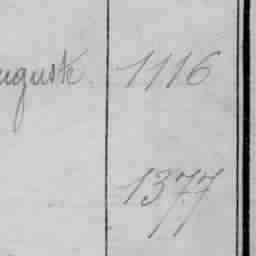 August 1116
1377